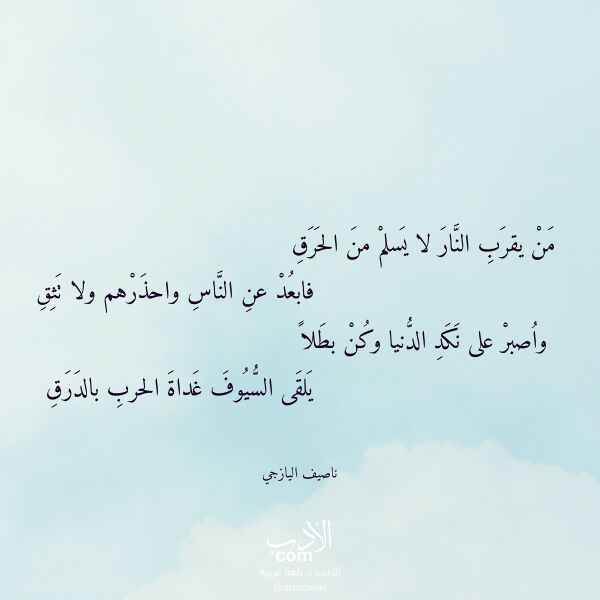 مَنْ يقرَبِ النَّارَ لا يَسلمْ منَ الحَرَقِ
فابعُدْ عنِ النَّاسِ واحذَرْهم ولا تَثِقِ
واُصبرْ على نَكَدِ الدُّنيا وكُنْ بطَلاً
يَلقَى السُّيُوفَ غَداةَ الحربِ بالدَرَقِ
ناصيف اليازجي
الأدب
.com
الأدب .. بلغة عربية
@adabwiki